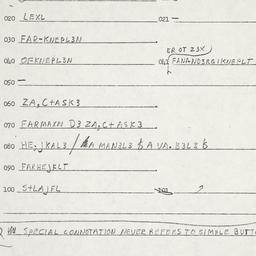 020 LEXL 021 —
030 FAR-KNEPL3N
ER OT Z3X
040 OEKNEPL3N 041 FANAND3RGIKNEPLT
050 —
060 ZA, C+ASK3
070 FARMAXN D3 ZA, C+ASK3
080 HE.JKAL3 / A MAN3L3 A VA. B3L3
090 FARHEJKLT
100 S+LAJFL 101 ?
SPECIAL CONNOTATION NEVER REFERS TO SIMPLE BUTT